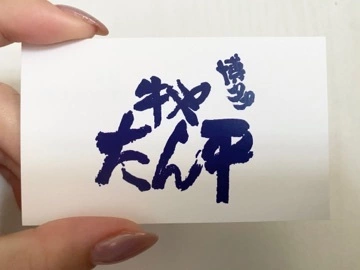 博多
牛や
たん平